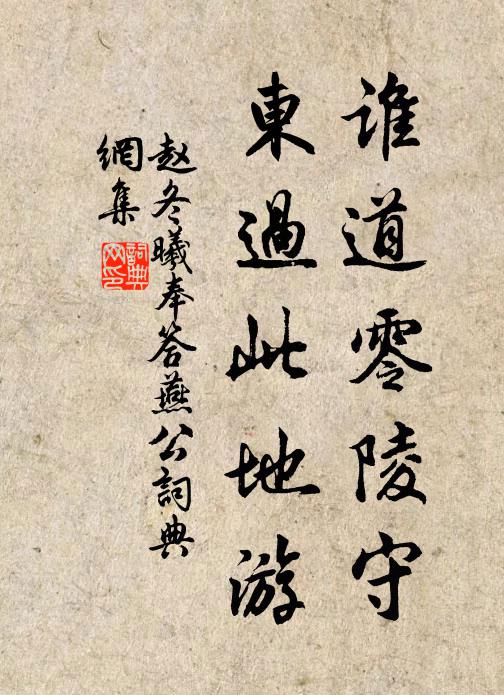 誰道零陵守
東過此地游
赵冬曦奉答燕公詞典
網集
詞典
网印